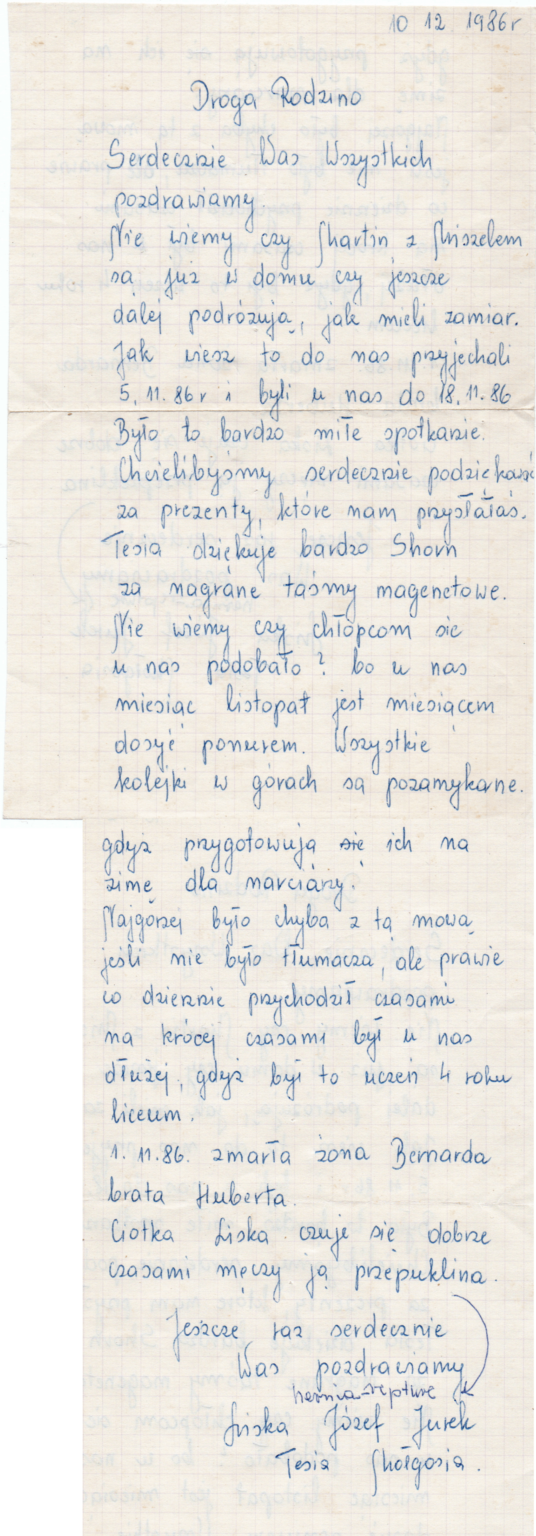 10 12 1986r
Droga Rodzino
Serdecznie Was Wszystkich
pozdrawiamy
Nie wiemy czy Martin z Miszelem
są już w domu czy jeszcze
dalej podróżują, jak mieli zamiar.
Jak wiesz to do nas przyjechali
5.11.86r i byli u nas do 18.11.86
Było to bardzo miłe spotkanie.
Chcielibyśmy serdecznie podziękować
za prezenty, które nam przysłałaś.
Tesia dziękuje bardzo Shorn
za nagrane taśmy magenetowe.
Nie wiemy czy chłopcom sie
u nas podobało? bo u nas
miesiąc listopat jest miesiącem
dosyć ponurem. Wszystkie
kolejki w górach są pozamykane.
gdyż przygotowują się ich na
zimę dla narciarzy.
Najgorzej było chyba z tą mową
jeśli nie było tłumacza, ale prawie
co dziennie przychodził czasami
na krócej czasami był u nas
dłużej, gdyż był to uczeń 4 roku
liceum.
1.11.86. zmarła żona Bernarda
brata Huberta.
Ciotka Liska czuje sie dobrze
czasami męczy ją przepuklina.
Jeszcze raz serdecznie
Was pozdrawiamy
hernia-repture
Józef Jurek
Tesia Małgosia.